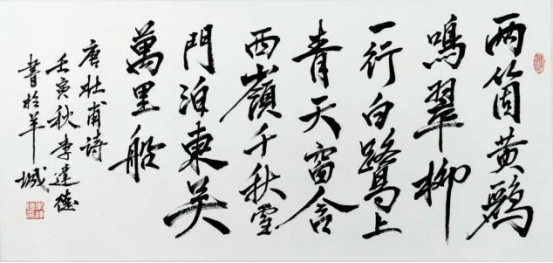 兩箇黃鸝
鳴翠柳
一行白鷺上
青天窗含
西嶺千秋雪
門泊東吳
萬里船
唐杜甫詩
壬寅秋李
書於羊城